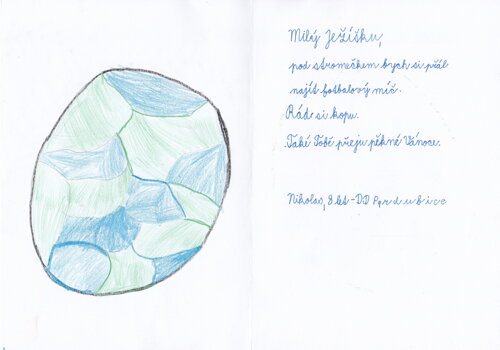 Milý Ježíšku,
pod stromečkem bych si přál
najít fotbalový míč.
Rád si kopu.
Také Tobě přeju pěkné Vánoce.
Nikolas, 8 let - DD Pardubice